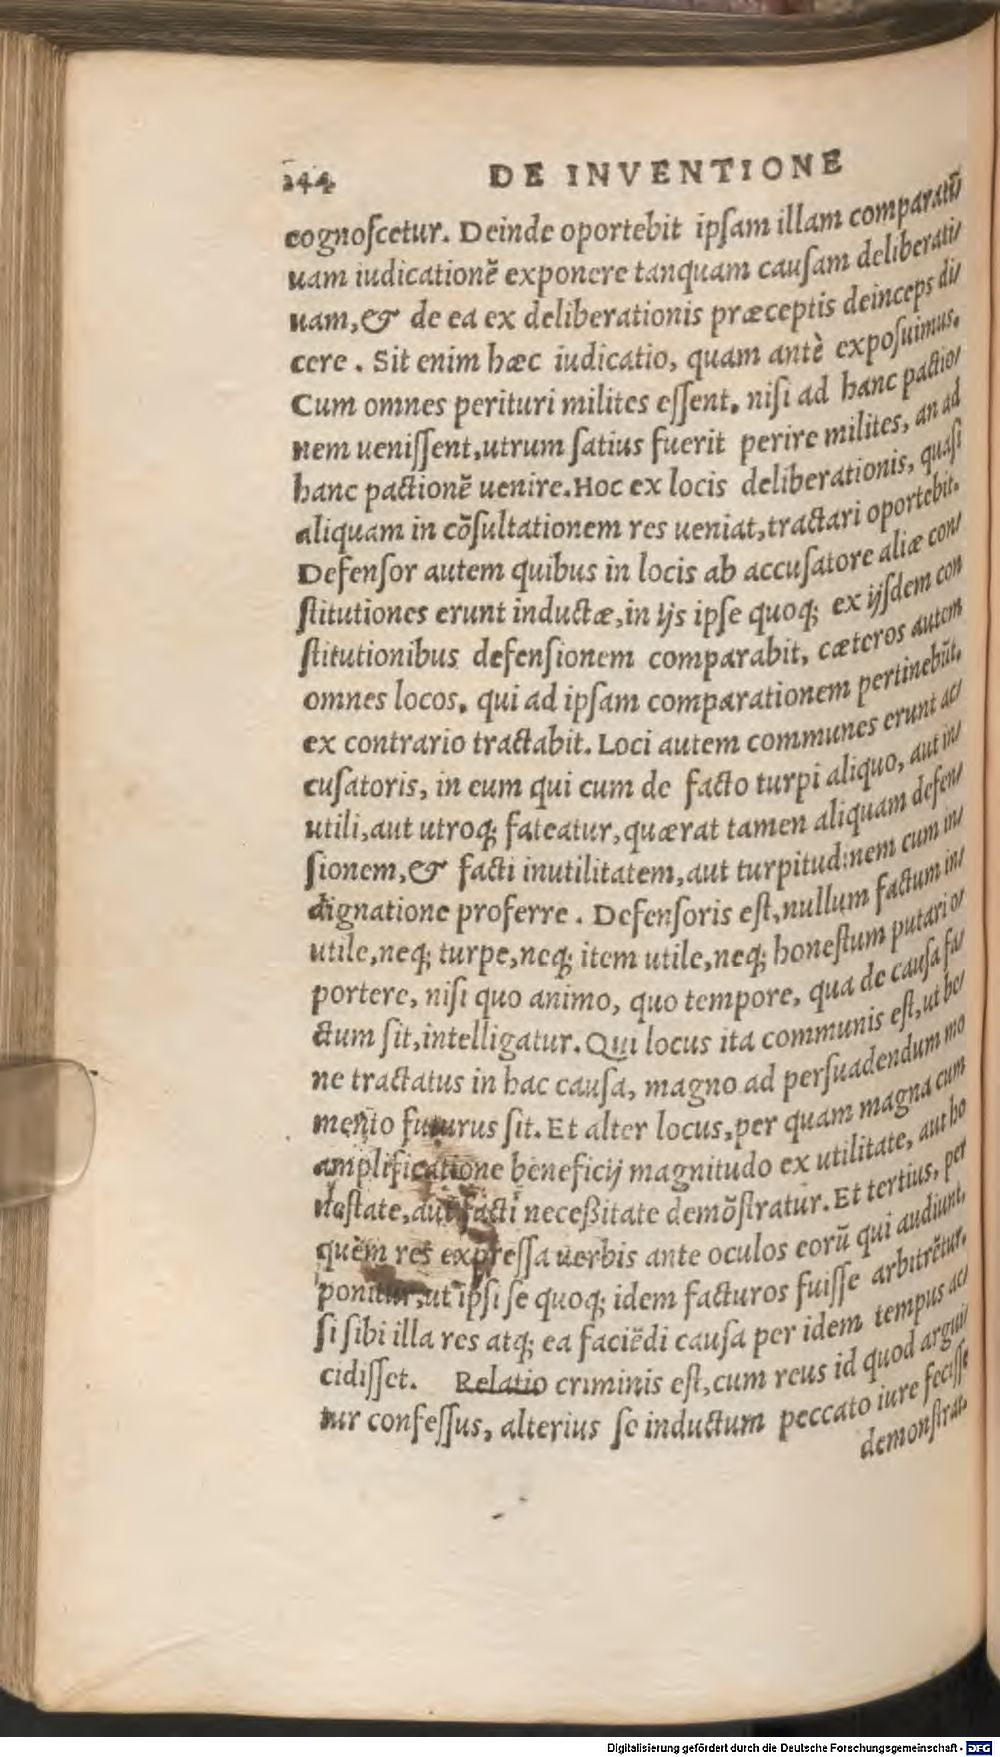 244 DE INVENTIONE
cognoſcetur. Deinde oportebit ipſam illam comparatĩ/
uam iudicationẽ exponere tanquam cauſam deliberati/
uam,& de ea ex deliberationis præceptis deinceps di/
cere. Sit enim hæc iudicatio, quam antè expoſuimus.
Cum omnes perituri milites eſſent, niſi ad hanc pactio/
nem ueniſſent,utrum ſatius fuerit perire milites, an ad
hanc pactionẽ uenire.Hoc ex locis deliberationis, quaſi
aliquam in cõſultationem res ueniat,tractari oportebit.
Defenſor autem quibus in locis ab accuſatore aliæ con/
ſtitutiones erunt inductæ,in ijs ipſe quoq; ex ijſdem con
ſtitutionibus defenſionem comparabit, cæteros autem
omnes locos, qui ad ipſam comparationem pertinebũt,
ex contrario tractabit. Loci autem communes erunt ac/
cuſatoris, in eum qui cum de facto turpi aliquo, aut in/
utili,aut utroq; fateatur,quærat tamen aliquam defen/
ſionem,& facti inutilitatem,aut turpitudinem cum in/
dignatione proferre. Defenſoris eſt,nullum factum in/
utile,neq; turpe,neq; item utile,neq; honeſtum putari o/
portere, niſi quo animo, quo tempore, qua de cauſa fa/
ctum ſit,intelligatur. Qui locus ita communis eſt,ut be/
ne tractatus in hac cauſa, magno ad perſuadendum mo
mento futurus ſit. Et alter locus,per quam magna cum
amplificatione beneficij magnitudo ex utilitate, aut ho
neſtate,aut facti neceßitate demõſtratur. Et tertius, per
quem res expreſſa uerbis ante oculos eorũ qui audiunt,
ponitur,ut ipſi ſe quoq; idem facturos fuiſſe arbitrẽtur,
ſi ſibi illa res atq; ea faciẽdi cauſa per idem tempus ac/
cidiſſet. Relatio criminis eſt,cum reus id quod argui/
tur confeſſus, alterius ſe inductum peccato iure feciſſe
demonſtrat.
Digitalisierung gefördert durch die Deutsche Forschungsgemeinschaft - DFG